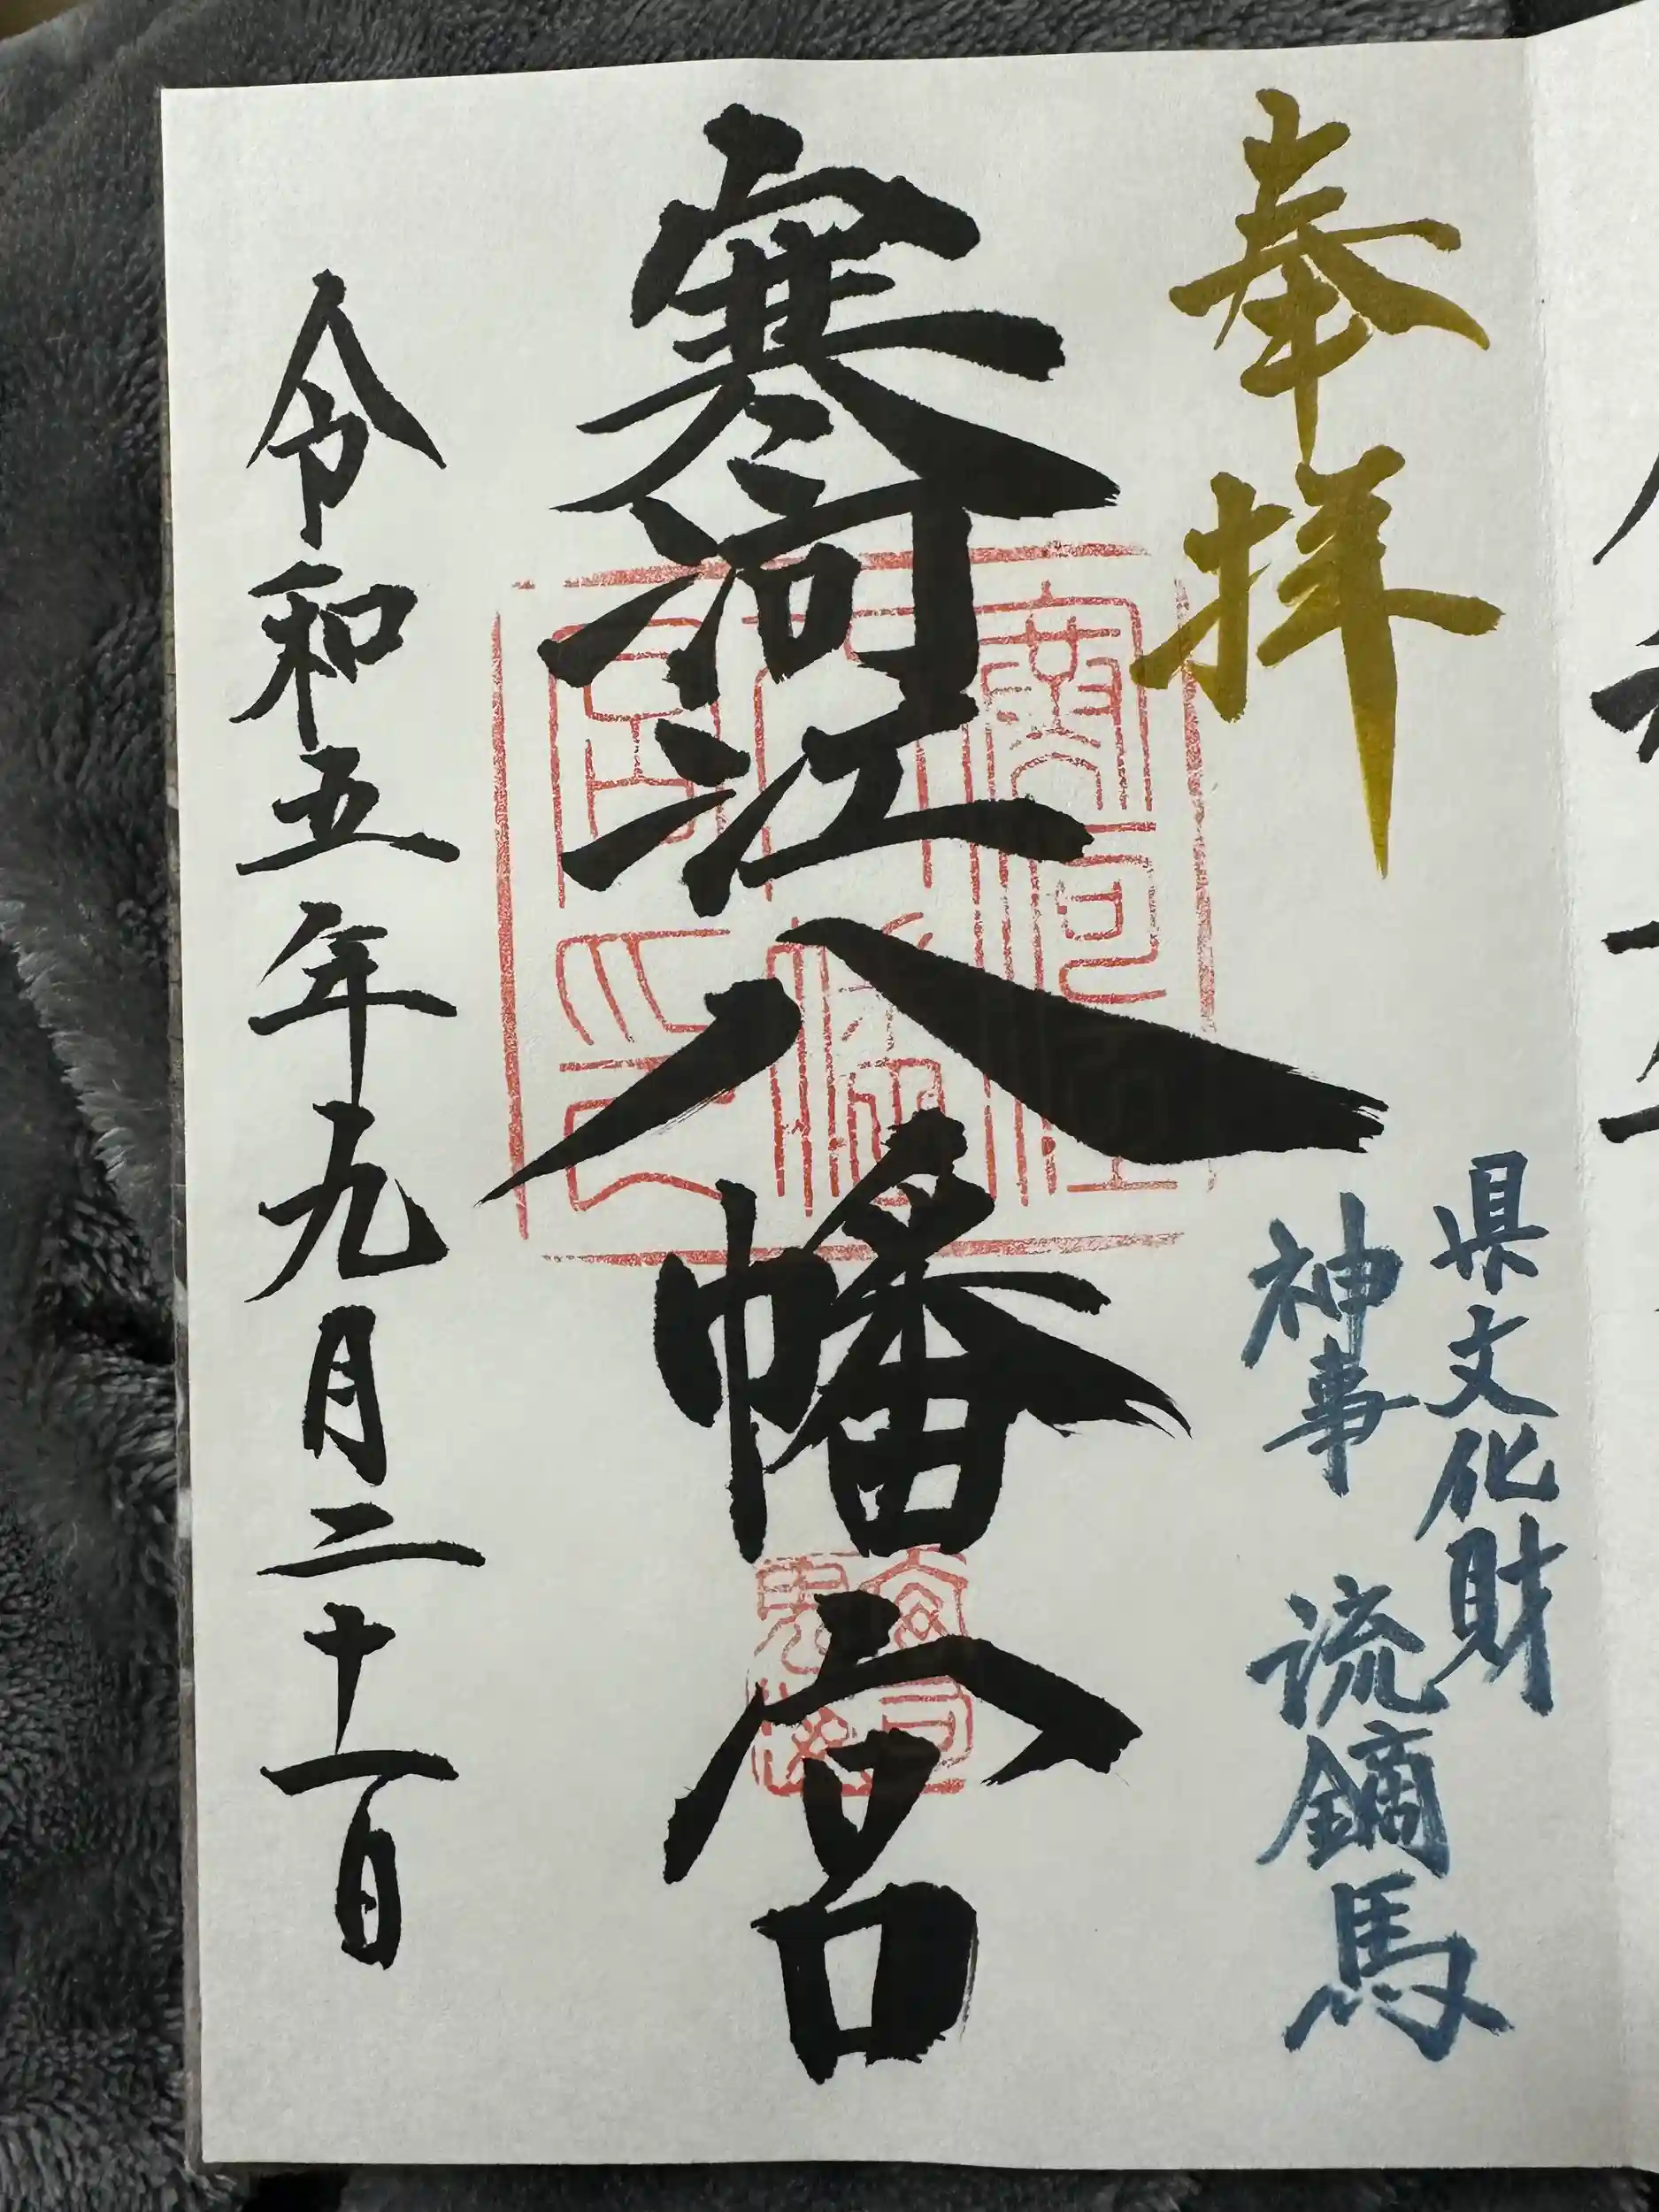 奉拝
県文化財
神事 流鏑馬
寒河江八幡宮
令和五年九月二十一日